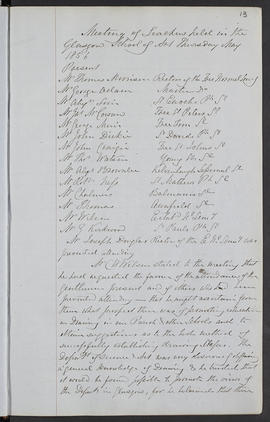 13
Meeting of Teachers held in the
Glasgow School of Art Thursday May
1856
Present
Mr Thomas Morrison Rector of the Free Normal Sem
Mr George Master Do
Mr Alexr St Enochs Ph Sc
Mr Jas Mc Free St Peters Sc
Mr George Muir Free Tron Sc
Mr John Dickie St Davids Ph Sc
Mr John Craigie Free St Johns Sc
Mr Thos Watson Young St Sc
Mr Alexr Sessional Sc
Mr Robt St Mathews Ph Sc
Mr Chalmers Sc
Mr Thomas Sc
Mr Wilson Estabd Nl Semy
Mr G Kirkwood St Pauls Ph Sc
Mr Joseph Douglas Rector of the E. Nl Semy was
prevented attending
Mr C H Wilson stated to the meeting that
he had requested the favour of the attendance of the
gentlemen present and of others who had been
prevented attending in that he might ascertain from
them what prospect there was of promoting education
in Drawing in the Parish & other Schools and to
obtain suggestions as to the best method of
successfully establishing drawing classes. The
Depart of Science & Art was very desirous of diffusing
a general knowledge of Drawing, & he trusted that
it would be found possible to promote the views of
the Depart in Glasgow, for he believed that there